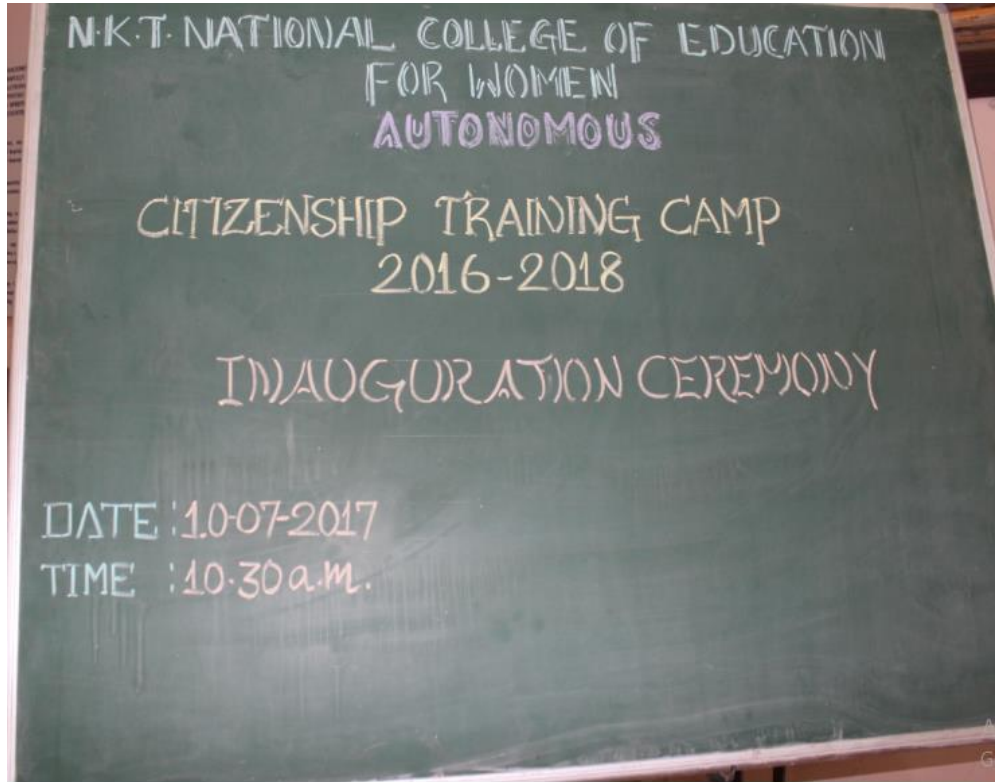 N.K.T. NATIONAL COLLEGE OF EDUCATION
FOR WOMEN
AUTONOMOUS
CITIZENSHIP TRAINING CAMP
2016-2018
INAUGURATION CEREMONY
DATE :10-07-2017
TIME :10.30a.m.